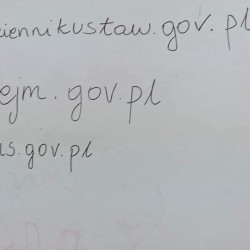 iennikustaw.gov.pl
ejm.gov.pl
us.gov.pl